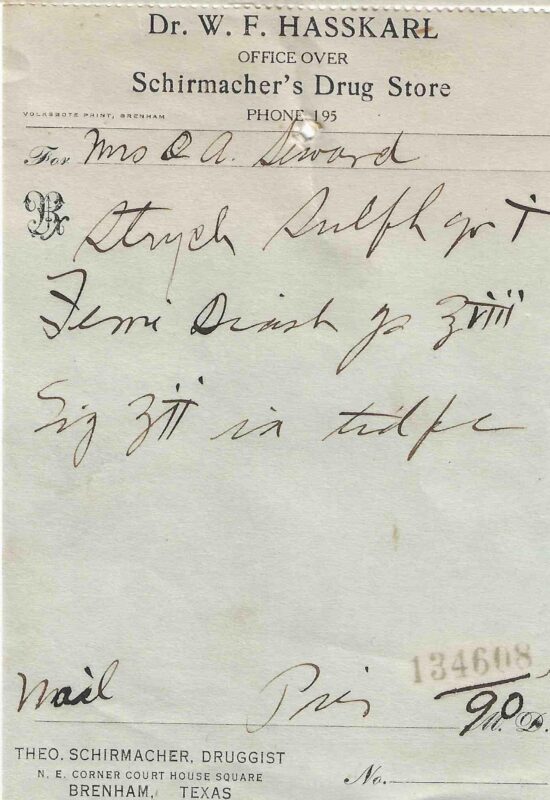 Dr. W. F. HASSKARL
OFFICE OVER
Schirmacher's Drug Store
VOLKSBOTE PRINT, BRENHAM
PHONE 195
For Mrs O A. Seward
Rx
Strych Sulph gr i
Ferri
Sig ʒii in tid pc
134608
Mail
90
M. D.
THEO. SCHIRMACHER, DRUGGIST
N. E. CORNER COURT HOUSE SQUARE
BRENHAM, TEXAS
No.